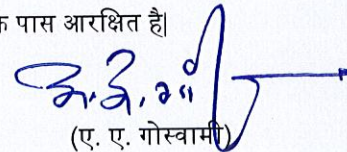 के पास आरक्षित है|
(ए. ए. गोस्वामी)